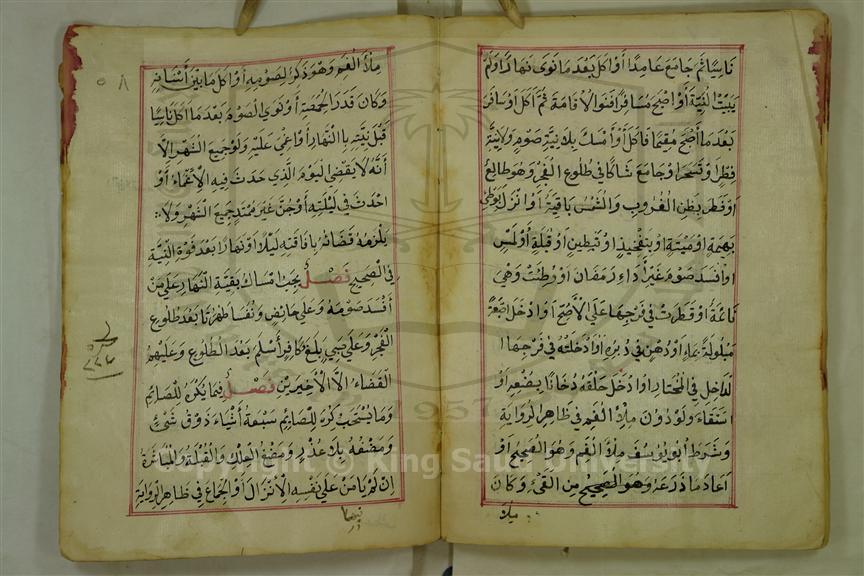 ناسيا ثم جامع عامدا أو أكل بعد ما نوى نهارا ولم
يبيت النية أو أصبح مسافرا فنوى الإقامة ثم أكل أو سافر
بعد ما أصبح مقيما فأكل أو أمسك بلا نية صوم ولا نية
فطر أو تسحر أو جامع شاكا في طلوع الفجر وهو طالع
أو فطر بظن الغروب والشمس باقية أو أنزل بوطئ
بهيمة أو ميتة أو بتفخيذ أو تبطين أو قبلة أو لمس
أو أفسد صوم غير أداء رمضان أو وطئت وهي
نائمة أو قطرت في فرجها على الأصح أو أدخل أصبعه
مبلولة بماء أو دهن في دبره أو أدخلته في فرجها ا
لداخل في المختار أو أدخل حلقه دخانا بصنعه أو
استقاء ولو دون ملأ الفم في ظاهر الرواية
وشرط أبو يوسف ملأ الفم وهو الصحيح أو
أعاد ما ذرعه وهو الصحيح من القيء وكان
ملأ
ملأ الفم وهو ذكر لصومه أو أكل ما بين أسنانه
وكان قدر الحمصة أو نوى الصوم بعد ما أكل ناسيا
قبل نيته بالنهار أو أغمي عليه ولو جميع الشهر الا
أنه لا يقضي اليوم الذي حدث فيه الإغماء أو
احدث في ليلته أو جن غير ممتد جميع الشهر ولا
يلزمه قضائه بإفاقته ليلا أو نهارا بعد فوة النية
في الصحيح فصل يجب امساك بقية النهار على من
أفسد صومه وعلى حائض ونفسا طهرتا بعد طلوع
الفجر وعلى صبي بلغ وكافر أسلم بعد الطلوع وعليهم
القضاء الا الأخيرين فصل فيما يكره للصائم
وما يستحب كره للصائم سبعة أشياء ذوق شيئ
ومضغه بلا عذر ومضغ العلك والقبلة والمباشرة
ان لم يأمن على نفسه الإنزال أو الجماع في ظاهر الرواية
Copyright © King Saud University
1957